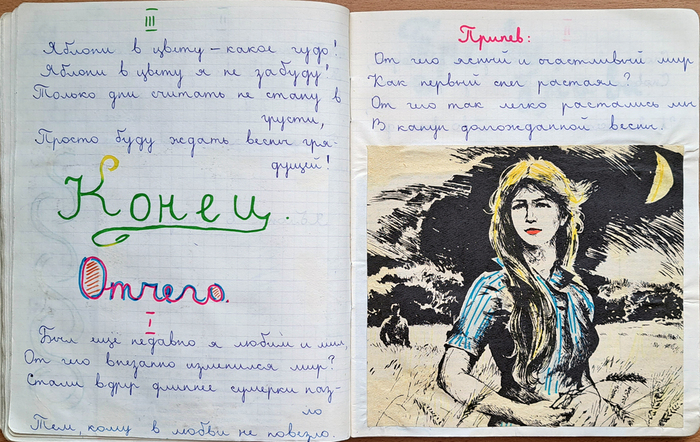 III
Яблони в цвету – какое чудо!
Яблони в цвету я не забуду!
Только дни считать не стану в
грусти,
Просто буду ждать весны гря-
дущей!
Конец.
Отчего.
I
Был ещё недавно я любим и мил,
От чего внезапно изменился мир?
Стали вдруг длиннее сумерки наз-
ло
Тем, кому в любви не повезло.
Припев:
От чего ясный и счастливый мир
Как первый снег растаял?
От чего так легко растались мы
В канун долгожданной весны.